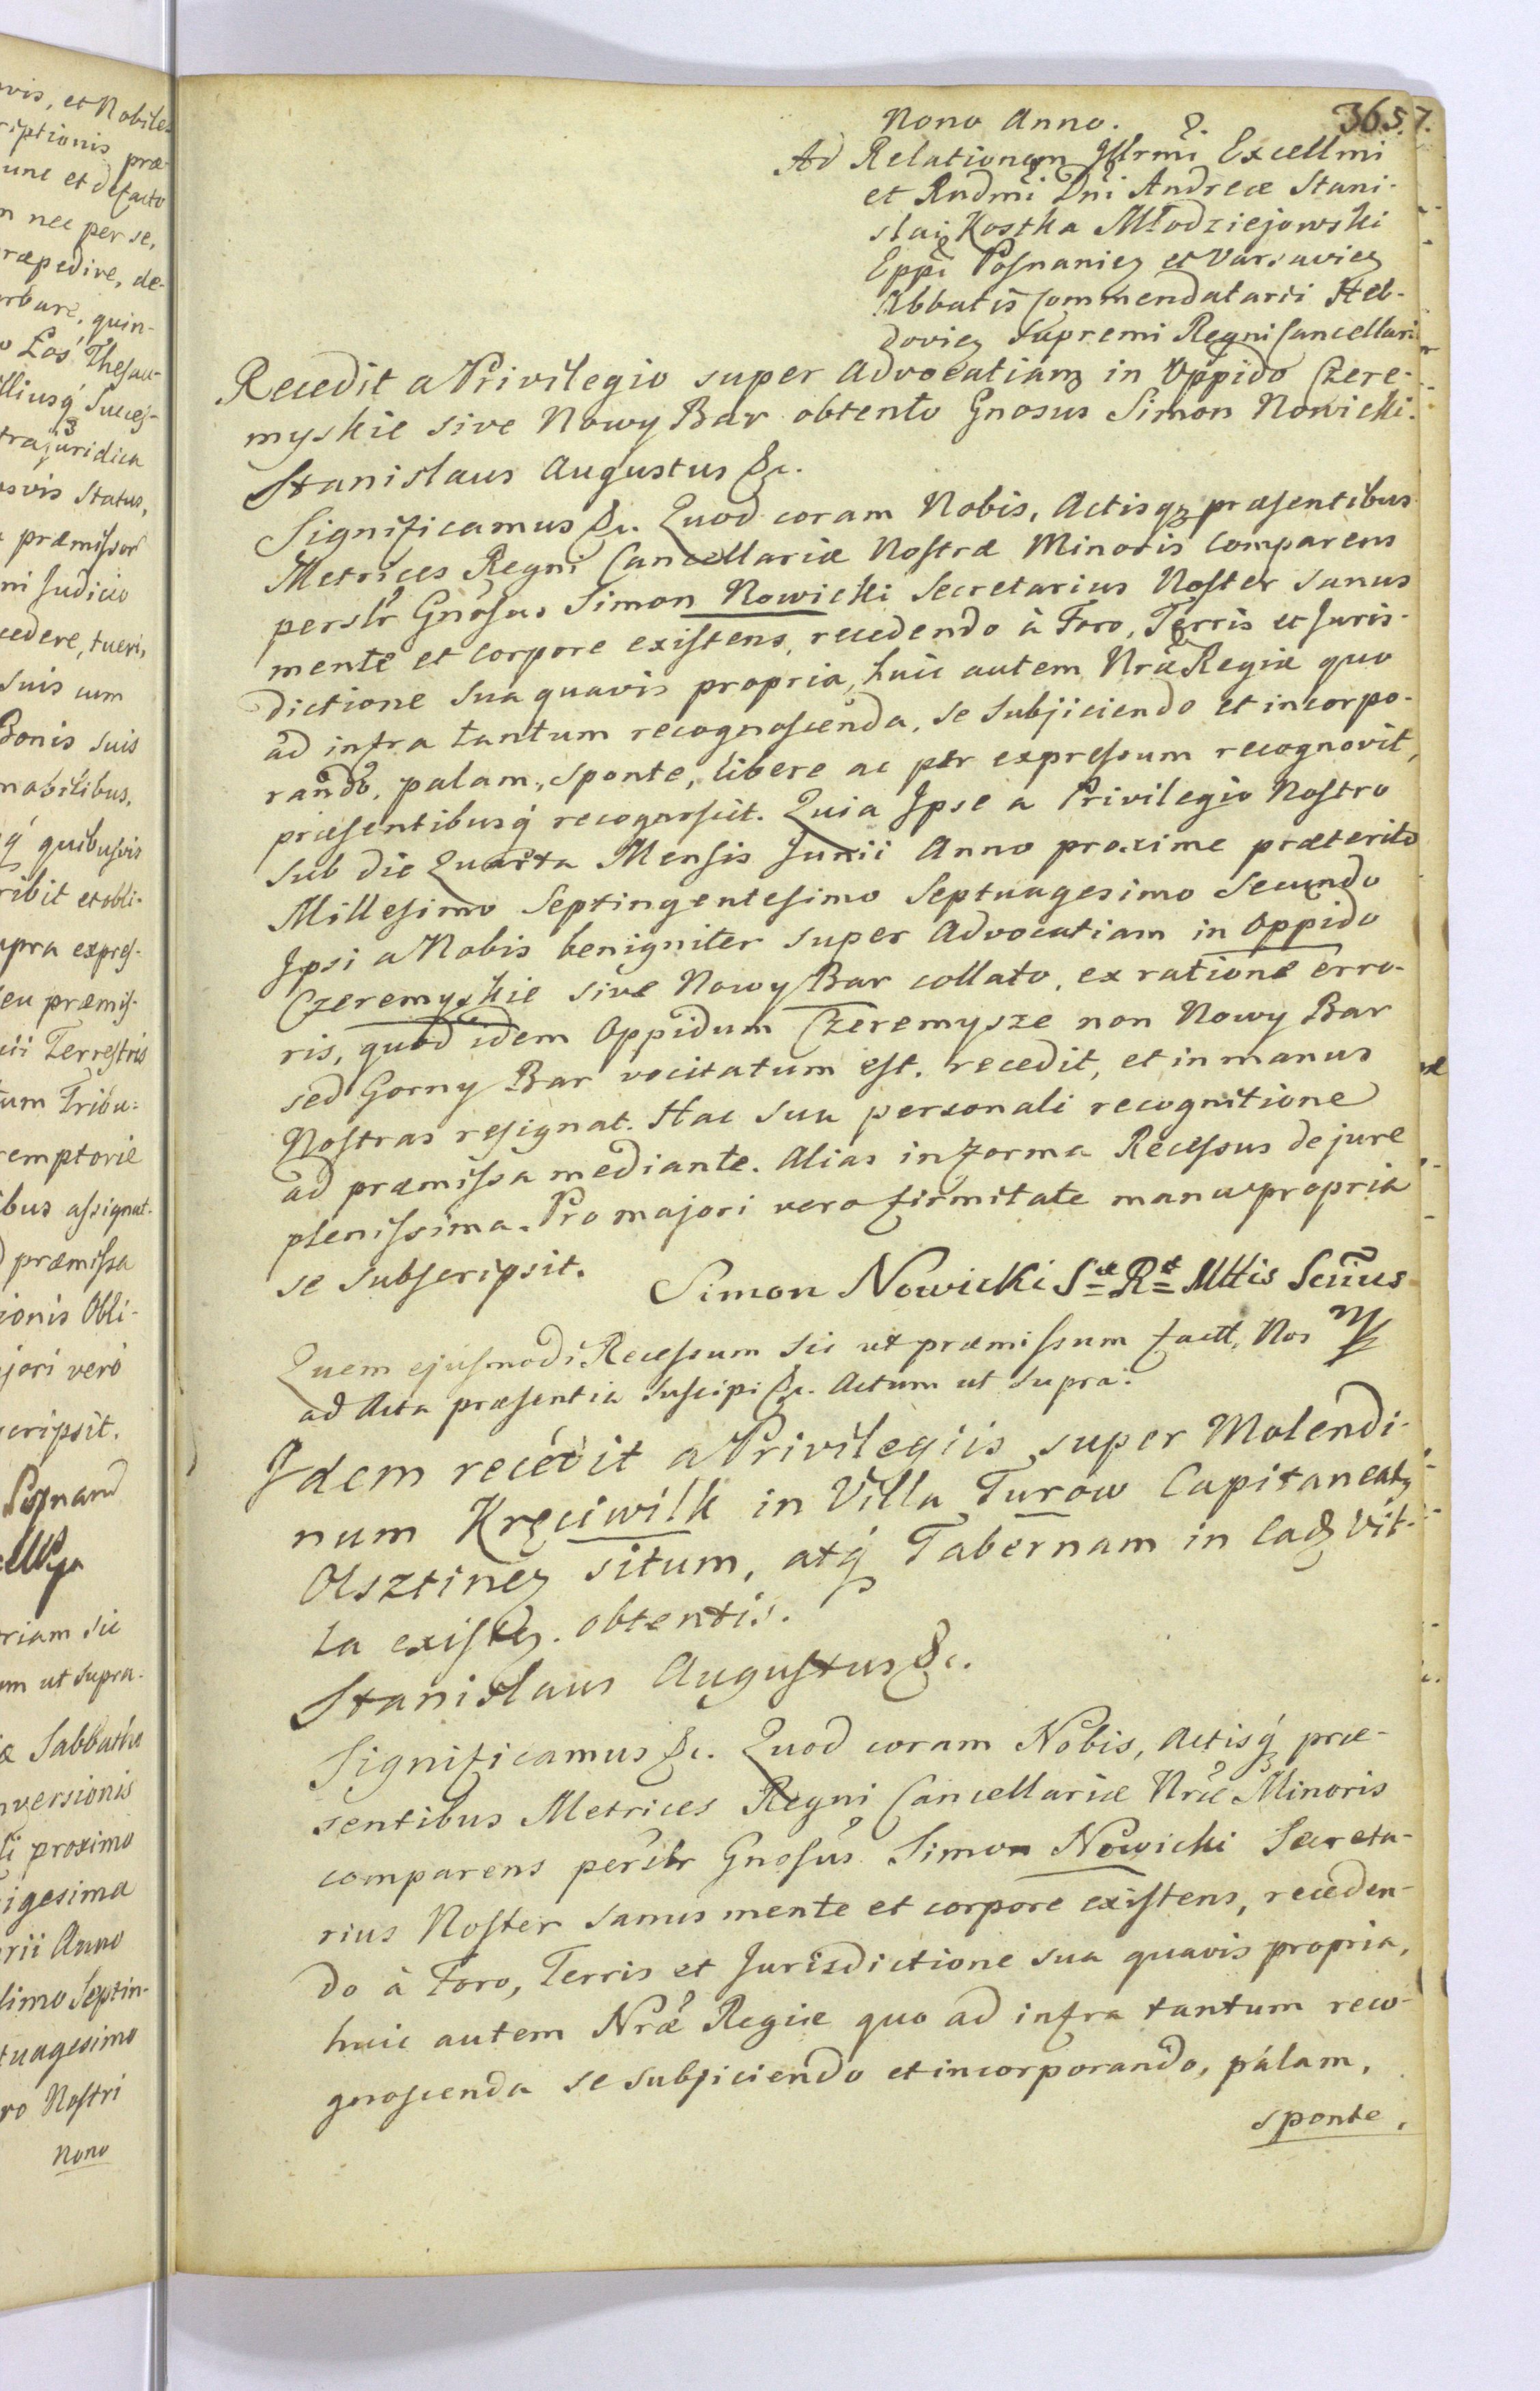 vis, et Nobiles
riptionis præ-
unc et defacto
n nec per se,
ræpedire, de-
rbare, quin-
o Łoś Thesau-
lliusq́ Succes-
trajuridica
osvis Status,
præmissor
ni Judicio
cedere, tueri,
suis cum
Bonis suis
mobilibus,
q́ quibusvis
ribit et obli-
upra expres-
eu præmis-
cii Terrestris
tum Tribu-
emptorie
ibus assignat.
præmissa
ionis Obli-
jori vero
scripsit.
riam sic
um ut supra.
æ Sabbatho
nversionis
li proximo
igesima
rii Anno
limo Septin-
tuagesimo
ro Nostri
nono
365. 7.
Nono Anno.
Ad Relationem Illrmi Excellmi
et Rndmi Dni Andreæ Stani-
slai Kostka Młodziejowski
Eppi Posnanieȝ et Varsavieȝ
Abbatis Commendatarii Heb-
dovieȝ Supremi Regni Cancellari
Recedit a Privilegio super Advocatiam in Oppido Czere-
myskie sive Nowy Bar obtento Gnosus Simon Nowicki.
Stanislaus Augustus &c.
Significamus &c. Quod coram Nobis, Actisqȝ præsentibus
Metrices Regni Cancellariæ Nostræ Minoris Comparens
perslr Gnosus Simon Nowicki Secretarius Noster sanus
mente et corpore existens, recedendo à Foro, Terris et Juris-
dictione sua quavis propria, huic autem Nræ Regiæ quo
ad infra tantum recognoscenda, se subjiciendo et incorpo-
rando, palam, sponte, libere ac per expressum recognovit,
præsentibusq́ recognoscit. Quia Ipse a Privilegio Nostro
sub die Quarta Mensis Junii Anno proxime præterito
Millesimo Septingentesimo Septuagesimo Secundo
Ipsi a Nobis benigniter super Advocatiam in Oppido
Czeremyskie sive Nowy Bar collato, ex ratione erro-
ris, quod idem Oppidum Czeremysze non Nowy Bar
sed Gorny Bar vocitatum est. recedit, et in manus
Nostras resignat. Hac sua personali recognitione
ad præmissa mediante. Alias in forma Recessus de jure
plenissima. Pro majori vero firmitate manu propria
se subscripsit.
Simon Nowicki Sæ Ræ Mttis Scrius
Quem ejusmodi Recessum sic ut præmissum factt, Nos
ad Acta præsentia suscipi &c. Actum ut supra.
Idem recedit a Privilegiis super Molendi-
num Kręciwilk in Villa Turow Capitaneatȝ
Olsztineȝ situm, atq́ Tabernam in eadȝ Vil-
la existeȝ. obtentis.
Stanislaus Augustus &c.
Significamus &c. Quod coram Nobis, Actisq́ præ-
sentibus Metrices Regni Cancellariæ Nræ Minoris
comparens perslr Gnosus Simon Nowicki Secreta-
rius Noster sanus mente et corpore existens, receden-
do à Foro, Terris et Jurisdictione sua quavis propria,
huic autem Nræ Regiæ quo ad infra tantum reco-
gnoscenda se subjiciendo et incorporando, palam,
sponte,